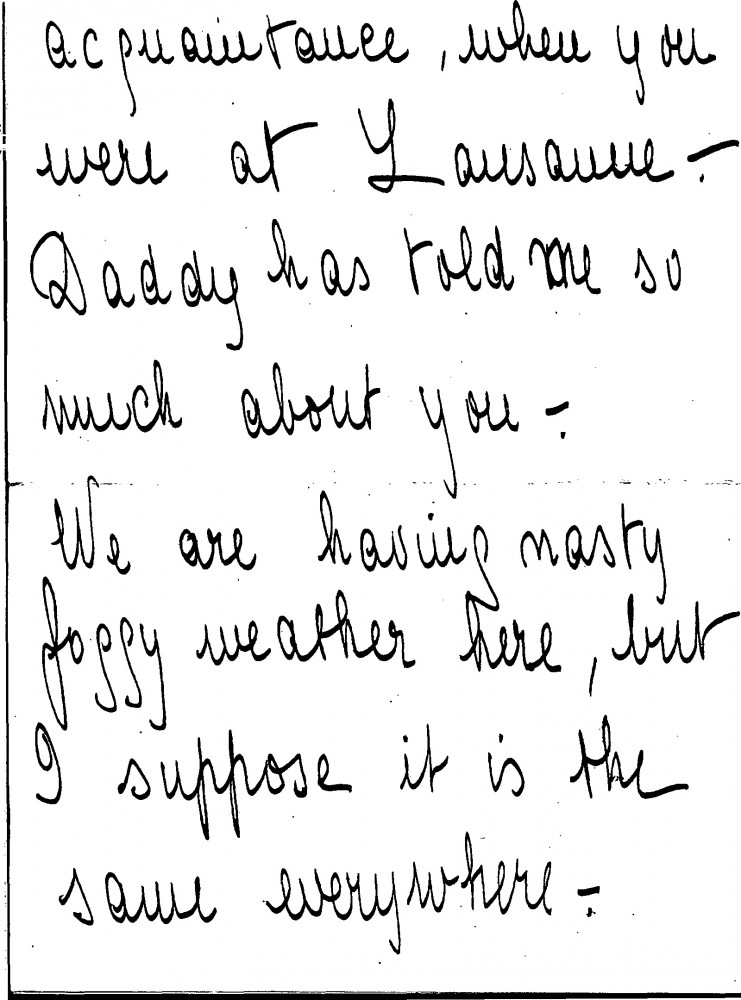 acquaintance, when you
were at Lausanne -.
Daddy has told me so
much about you -.
We are having nasty
foggy weather here, but
I suppose it is the
same everywhere -.